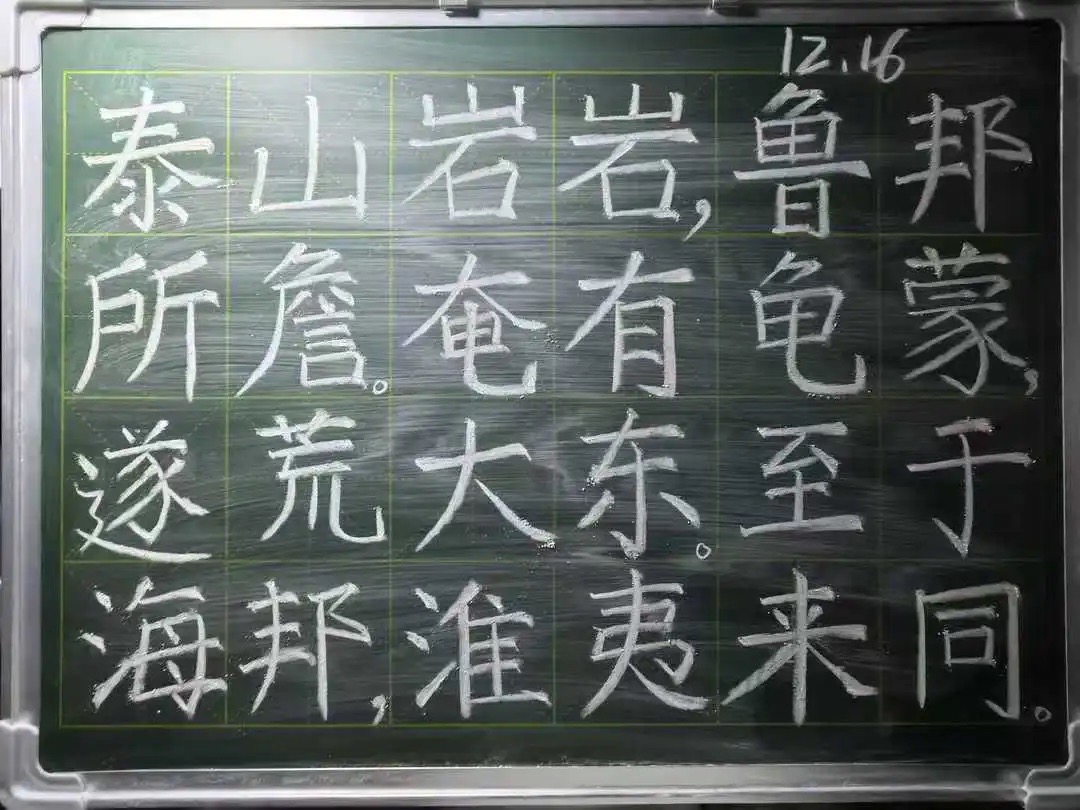 12.16
泰山岩岩,鲁邦
所詹。奄有龟蒙,
遂荒大东。至于
海邦,淮夷来同。